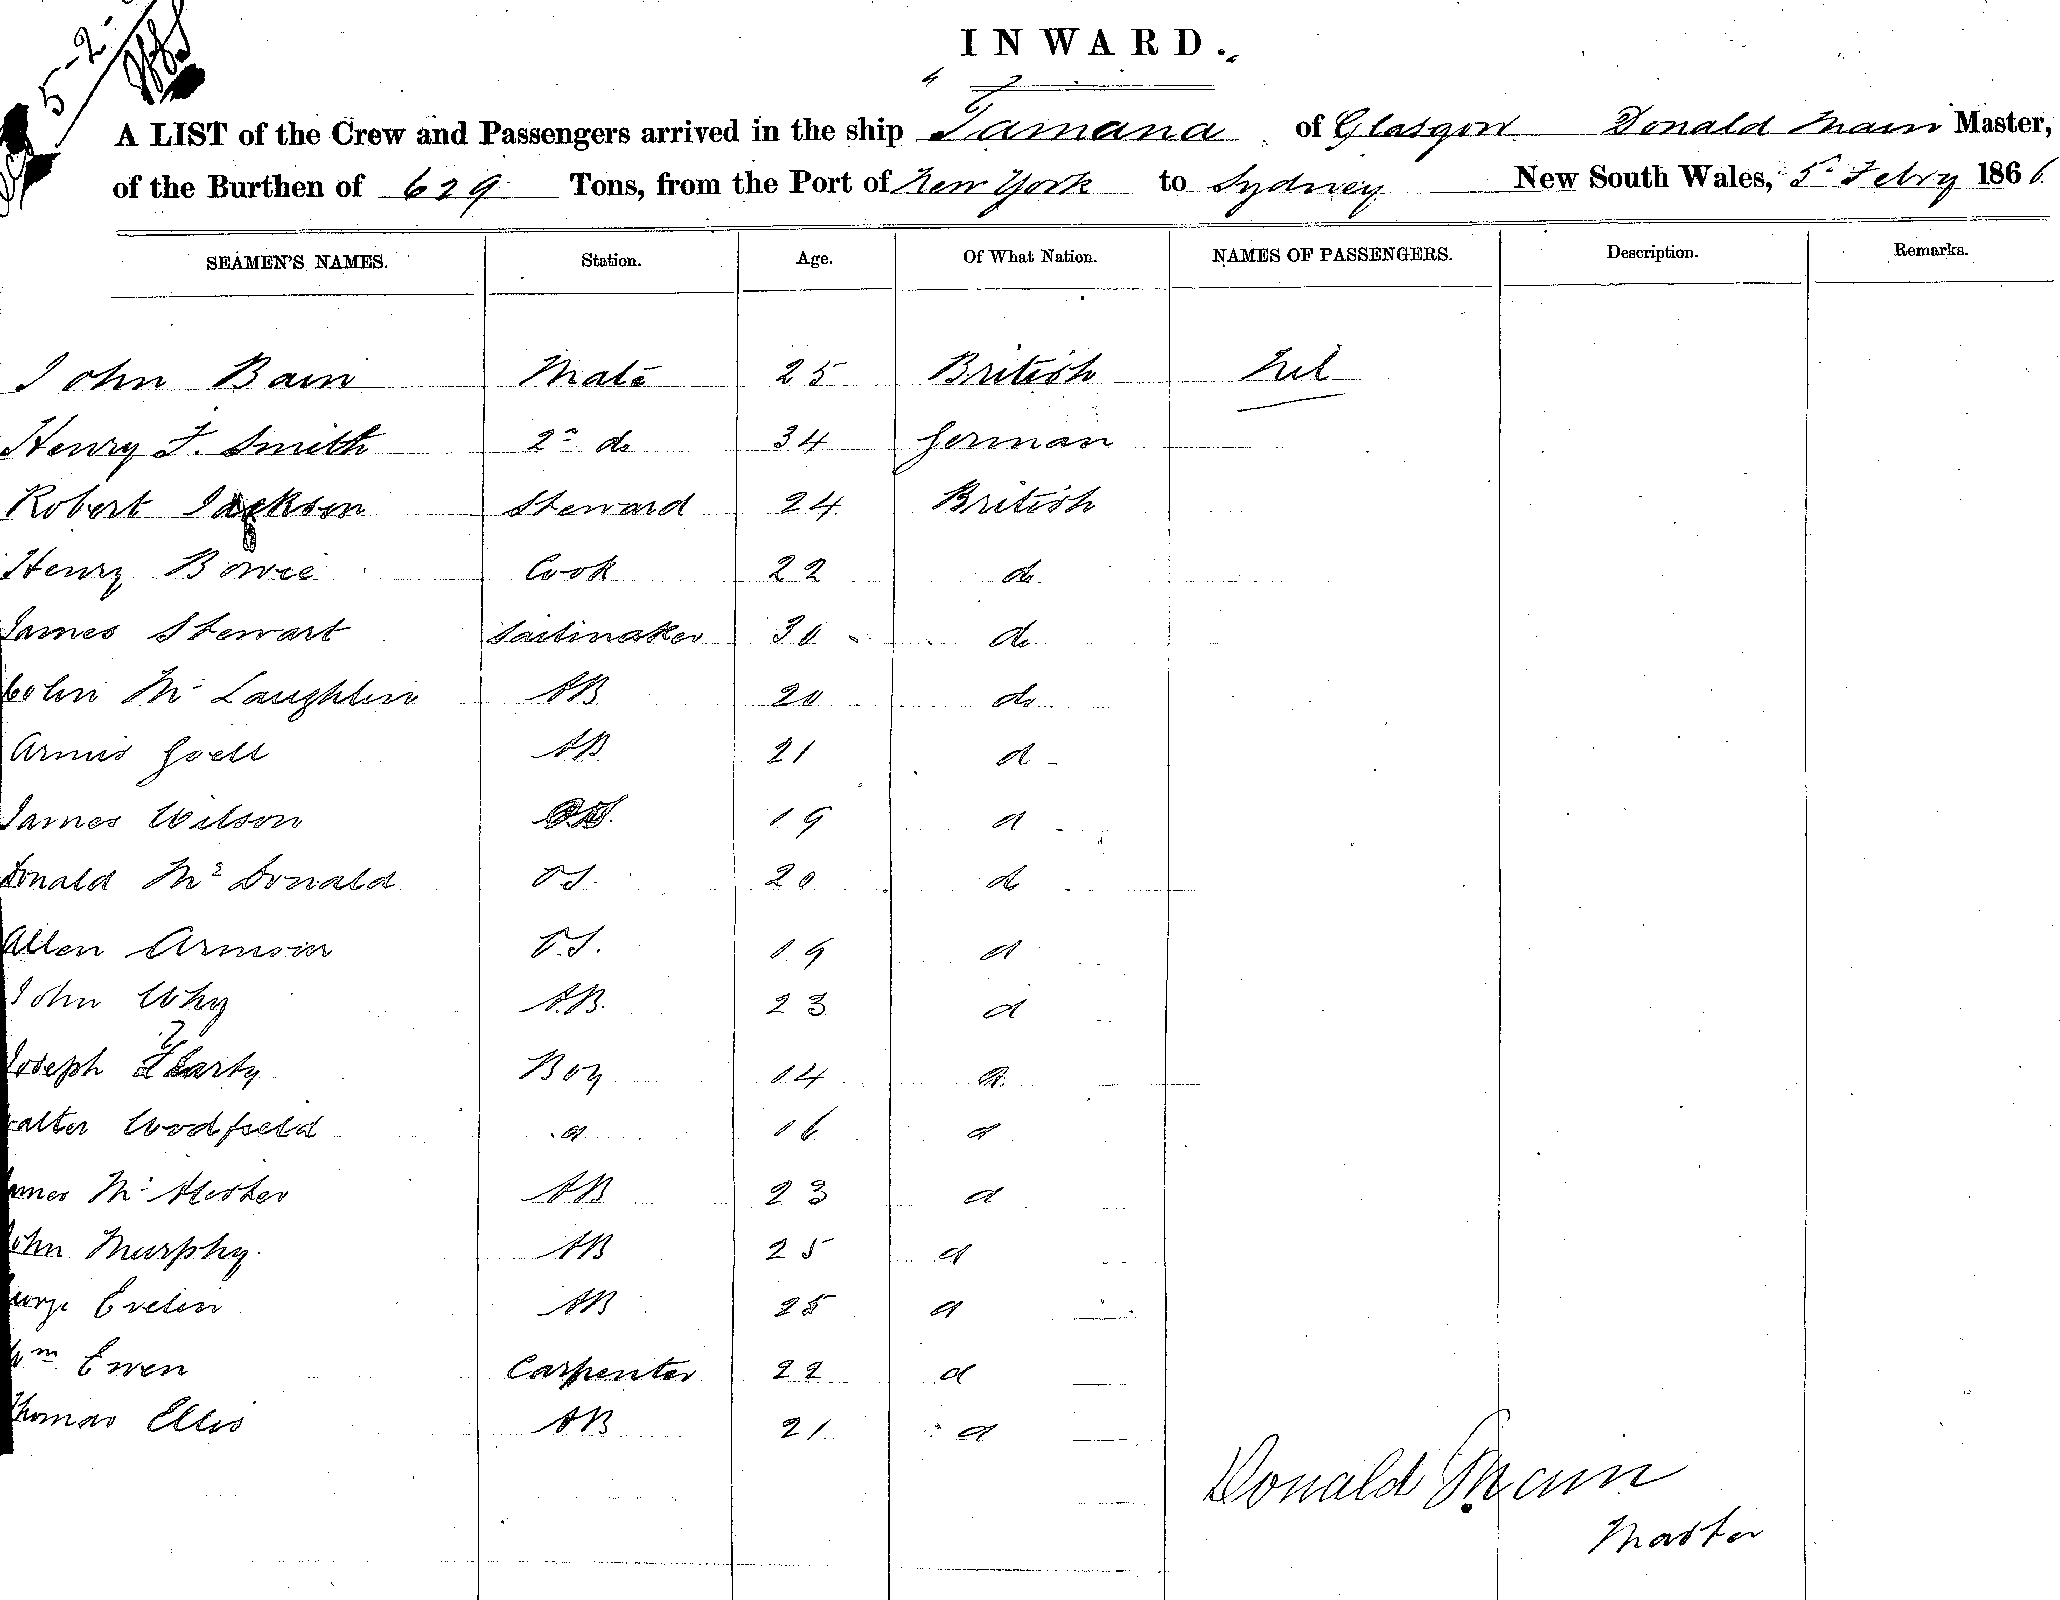 5-2-
INWARD.
A LIST of the Crew and Passengers arrived in the ship "Tamana" of Glasgow Donald Main Master,
of the Burthen of 629 Tons, from the Port of New York to Sydney New South Wales, 5th Febry 1866
SEAMEN'S NAMES. Station. Age. Of What Nation. NAMES OF PASSENGERS. Description. Remarks.
John Bain Mate 25 British Nil
Henry F. Smith 2nd do 34 German
Robert Jackson Steward 24 British
Henry Bowie Cook 22 do
James Stewart Sailmaker 30 do
Colin Mc Laughlin AB 20 do
Goell AB 21 do
James Wilson 19 do
Donald Mc Donald OS. 20 do
Allen Armour O.S. 19 do
John Why A.B. 23 do
Joseph Boy 14 do
Walter Woodfield do 16 do
James Mc Alester AB 23 do
John Murphy. AB 25 do
George Evelin AB 25 do
Wm Ewen Carpenter 22 do
Thomas Ellis AB 21 do
Donald Main
Master